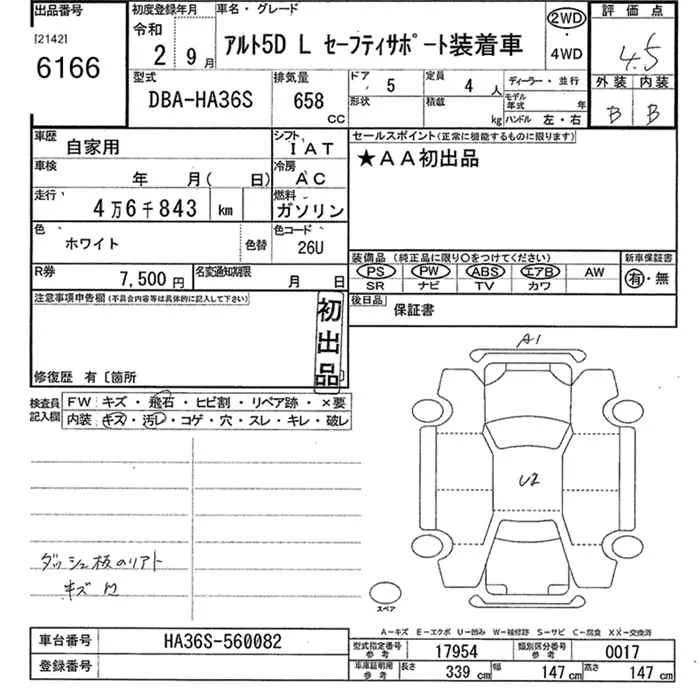 出品番号
[2142]
6166
初度登録年月
令和
2 9月
車名・グレード
アルト5D L セーフティサポート装着車
2WD
・
4WD
評価点
4.5
外装 内装
B B
型式
DBA-HA36S
排気量
658
CC
ドア 5
形状
定員 4 人
積載 kg
ディーラー・並行
モデル年式 年
ハンドル 左・右
車歴 自家用
シフト IAT
車検 年 月( 日)
冷房 AC
走行 4万6千843 km
燃料 ガソリン
色 ホワイト 色替
色コード 26U
R券 7,500円
名変通知期限 月 日
セールスポイント(正常に機能するものに限ります)
★AA初出品
装備品(純正品に限り○をつけてください)
PS PW ABS エアB AW
SR ナビ TV カワ
新車保証書
有・無
後日品 保証書
注意事項申告欄(不具合内容等は具体的に記入して下さい)
初出品
修復歴 有〔箇所 〕
検査員記入欄
FW:キズ・飛石・ヒビ割・リペア跡・×要
内装:キズ・汚レ・コゲ・穴・スレ・キレ・破レ
A1
U2
キズ
スペア
A−キズ E−エクボ U−凹み W−補修跡 S−サビ C−腐食 XX−交換済
車台番号 HA36S-560082
登録番号
型式指定番号参考 17954
類別区分番号参考 0017
車庫証明用参考 長さ 339 cm 幅 147 cm 高さ 147 cm